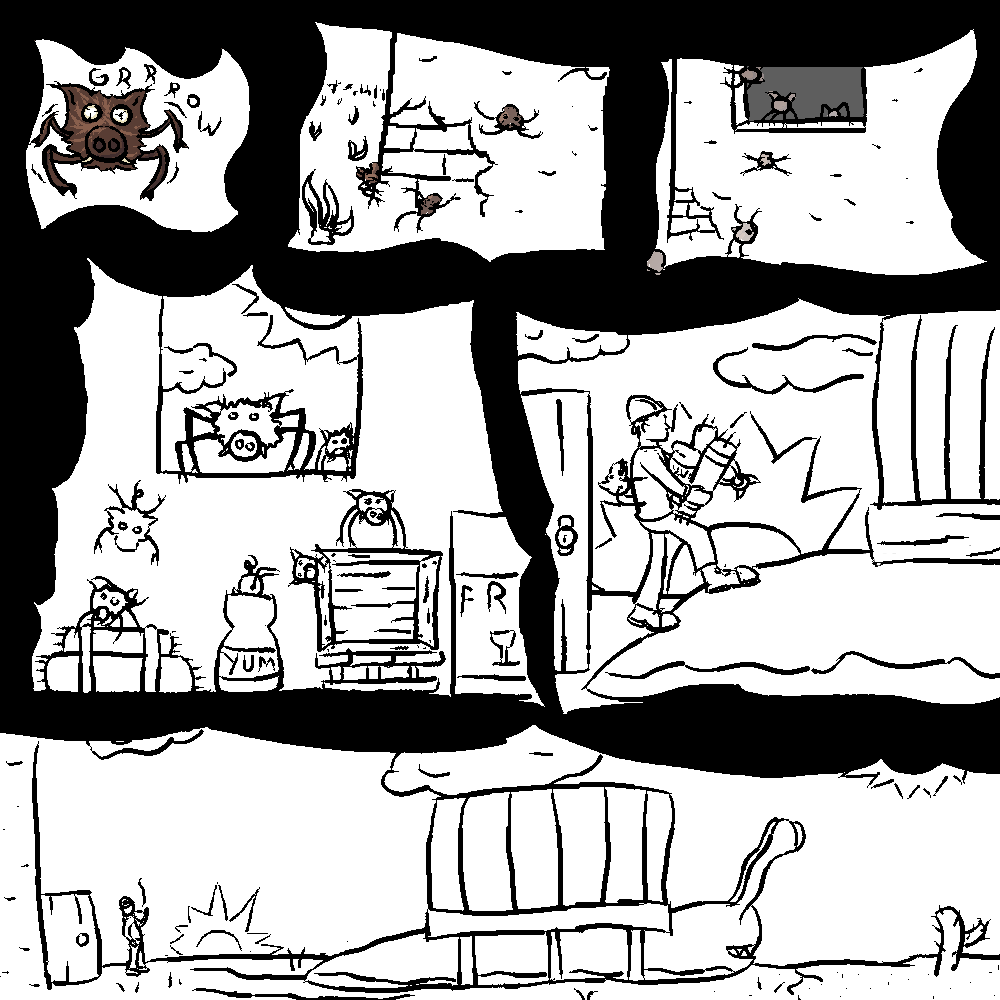 GRRROW
YUM
FR